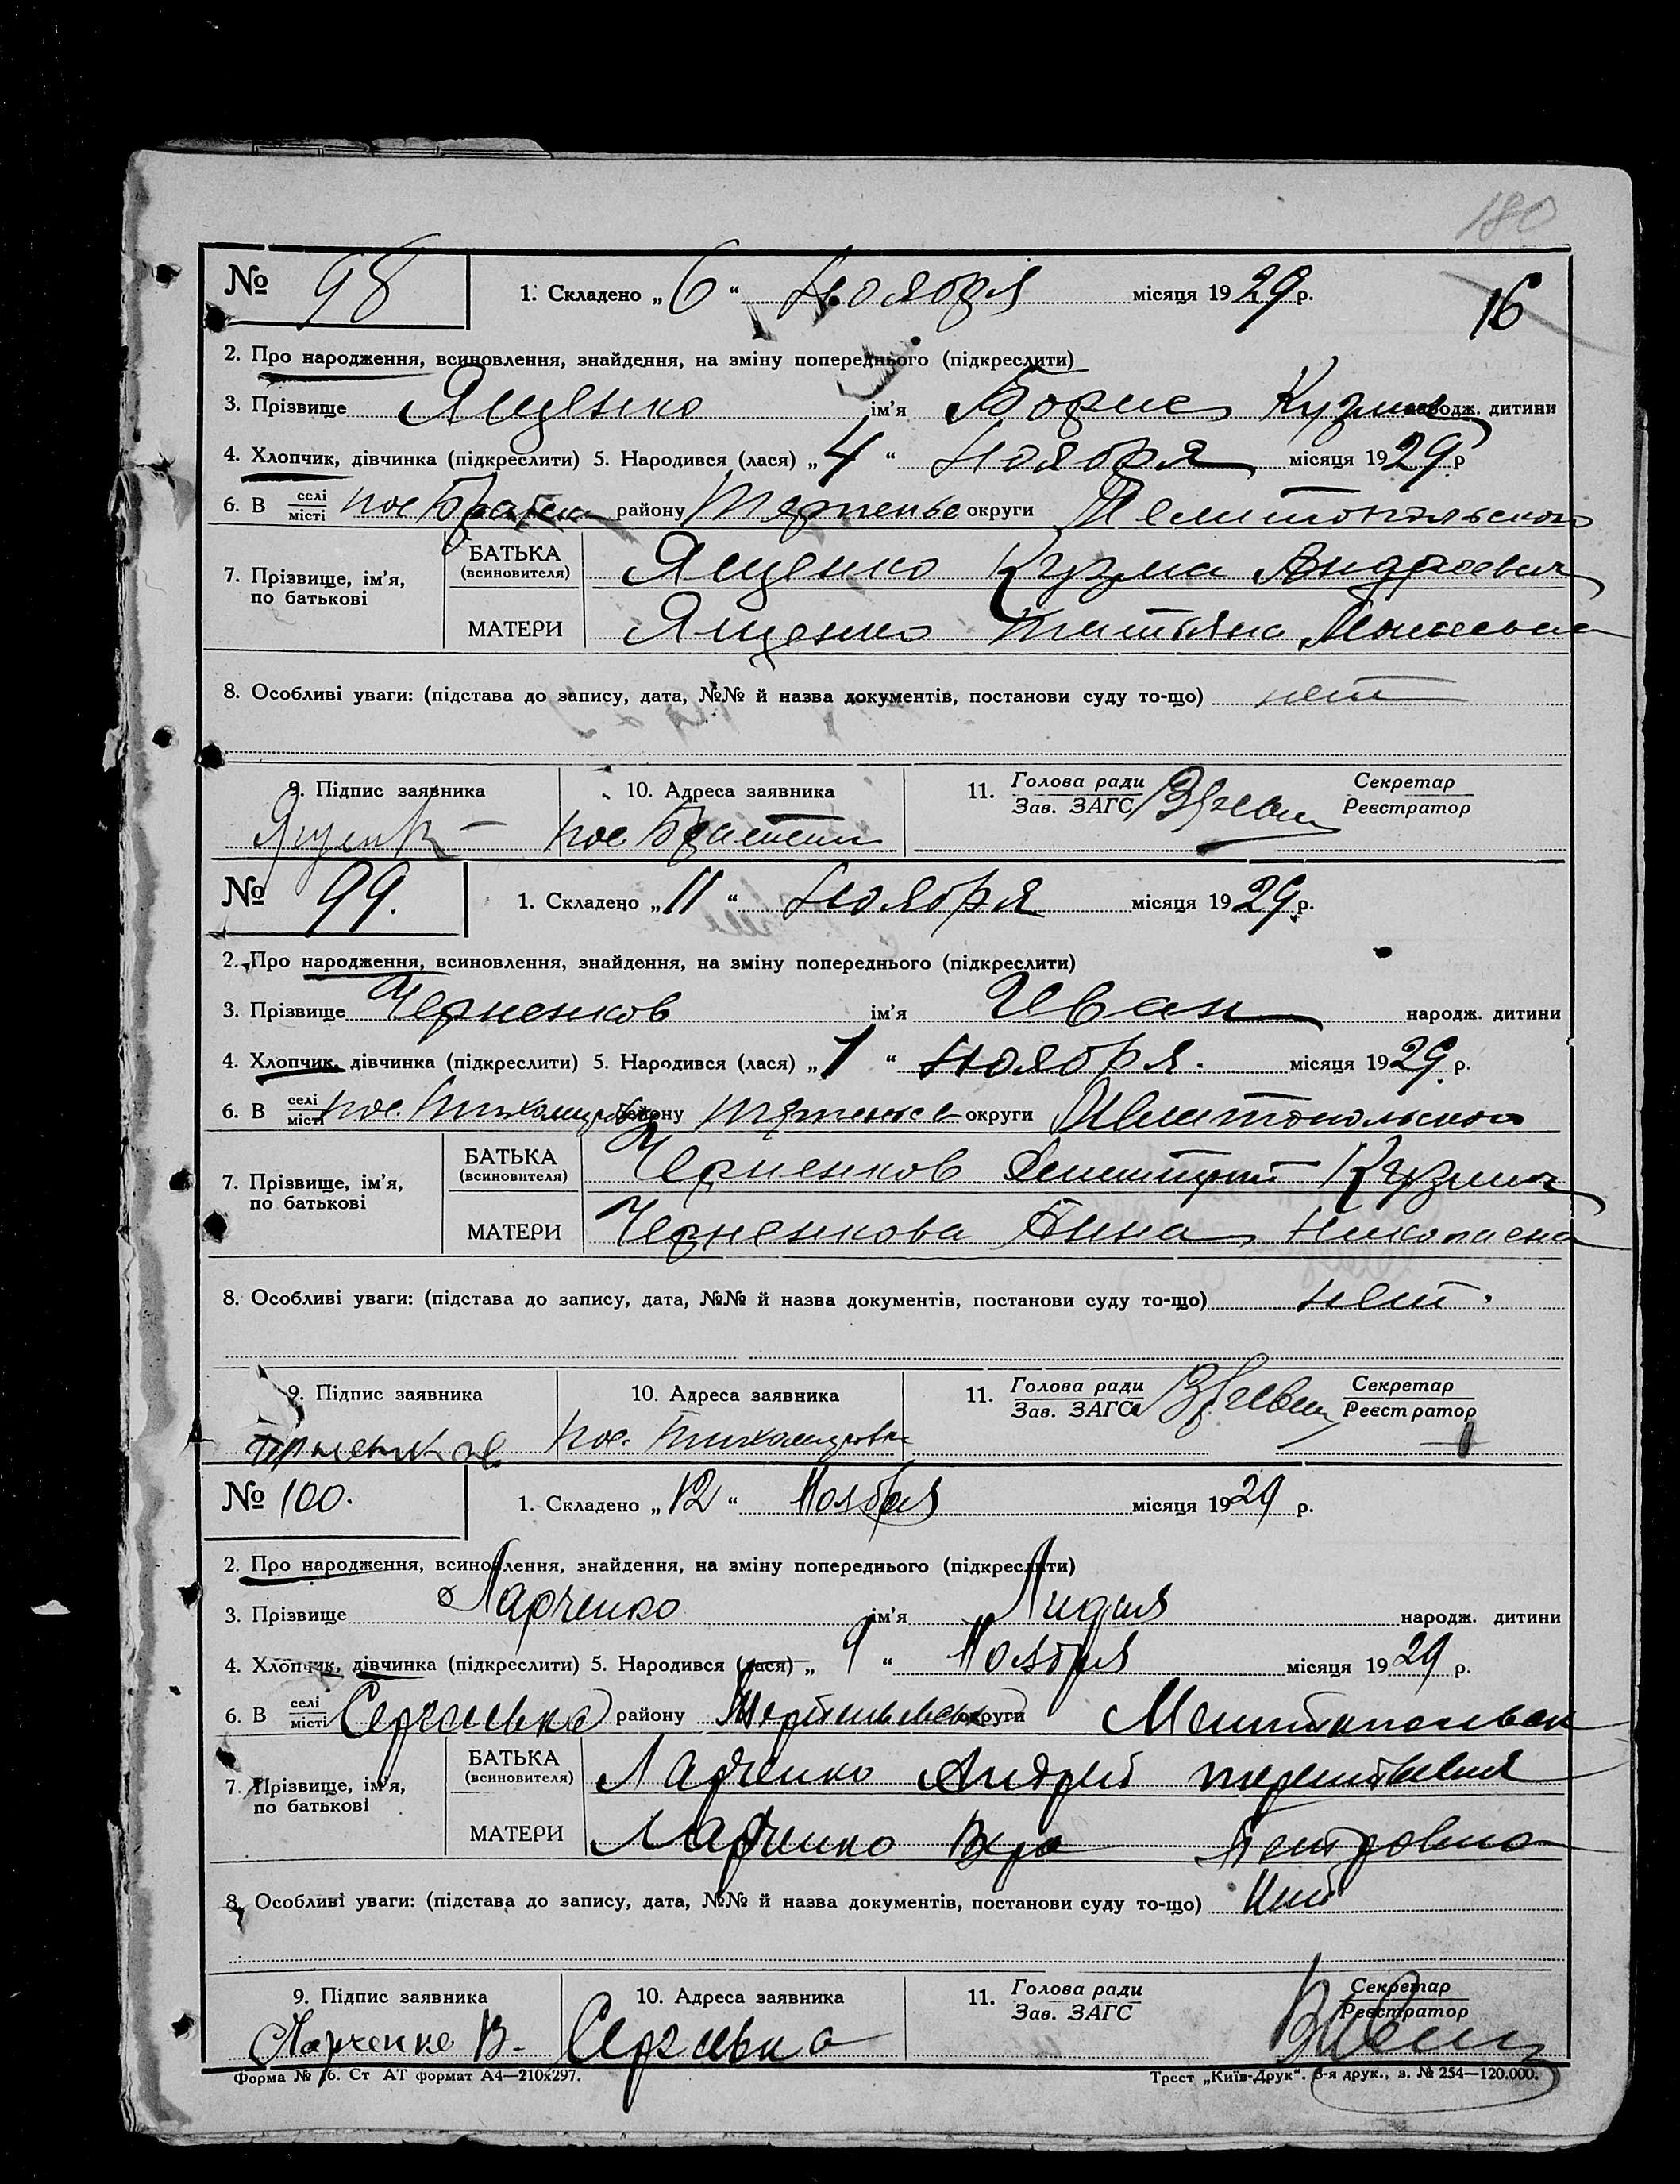 180
№ 98 1. Складено „6“ Ноября місяця 1929 р. 16
2. Про народження, всиновлення, знайдення, на зміну попереднього (підкреслити)
3. Прізвище Ященко ім'я Борис Кузмич народж. дитини
4. Хлопчик, дівчинка (підкреслити) 5. Народився (лася) „4“ Ноября місяця 1929 р
6. В селі місті пос району Терпенье округи Мелитопольского
7. Прізвище, ім'я, по батькові БАТЬКА (всиновителя) Ященко Кузма Андреевич
МАТЕРИ Ященко Татьяна
8. Особливі уваги: (підстава до запису, дата, №№ й назва документів, постанови суду то-що) нет
9. Підпис заявника 10. Адреса заявника 11. Голова ради Зав. ЗАГС Секретар Реєстратор
пос
№ 99. 1. Складено „11“ Ноября місяця 1929 р.
2. Про народження, всиновлення, знайдення, на зміну попереднього (підкреслити)
3. Прізвище Черненков ім'я Иван народж. дитини
4. Хлопчик, дівчинка (підкреслити) 5. Народився (лася) „1“ Ноября. місяця 1929 р.
6. В селі місті пос. Тихомировка району Терпенье округи Мелитопольского
7. Прізвище, ім'я, по батькові БАТЬКА (всиновителя) Черненков Дмитрий Кузмич
МАТЕРИ Черненкова Анна Николаевна
8. Особливі уваги: (підстава до запису, дата, №№ й назва документів, постанови суду то-що) нет.
9. Підпис заявника 10. Адреса заявника 11. Голова ради Зав. ЗАГС Секретар Реєстратор
пос. Тихомировка
№ 100. 1. Складено „12“ Ноября місяця 1929 р.
2. Про народження, всиновлення, знайдення, на зміну попереднього (підкреслити)
3. Прізвище Ларченко ім'я Лидия народж. дитини
4. Хлопчик, дівчинка (підкреслити) 5. Народився (лася) „9“ Ноября місяця 1929 р.
6. В селі місті Сергеевка району округи
7. Прізвище, ім'я, по батькові БАТЬКА (всиновителя) Ларченко Андрей
МАТЕРИ Ларченко Вера Петровна
8. Особливі уваги: (підстава до запису, дата, №№ й назва документів, постанови суду то-що) Нет
9. Підпис заявника 10. Адреса заявника 11. Голова ради Зав. ЗАГС Секретар Реєстратор
Ларченко В. Сергеевка
Форма № 6. Ст АТ формат А4—210х297. Трест „Київ-Друк“. 6-я друк., з. № 254—120.000.